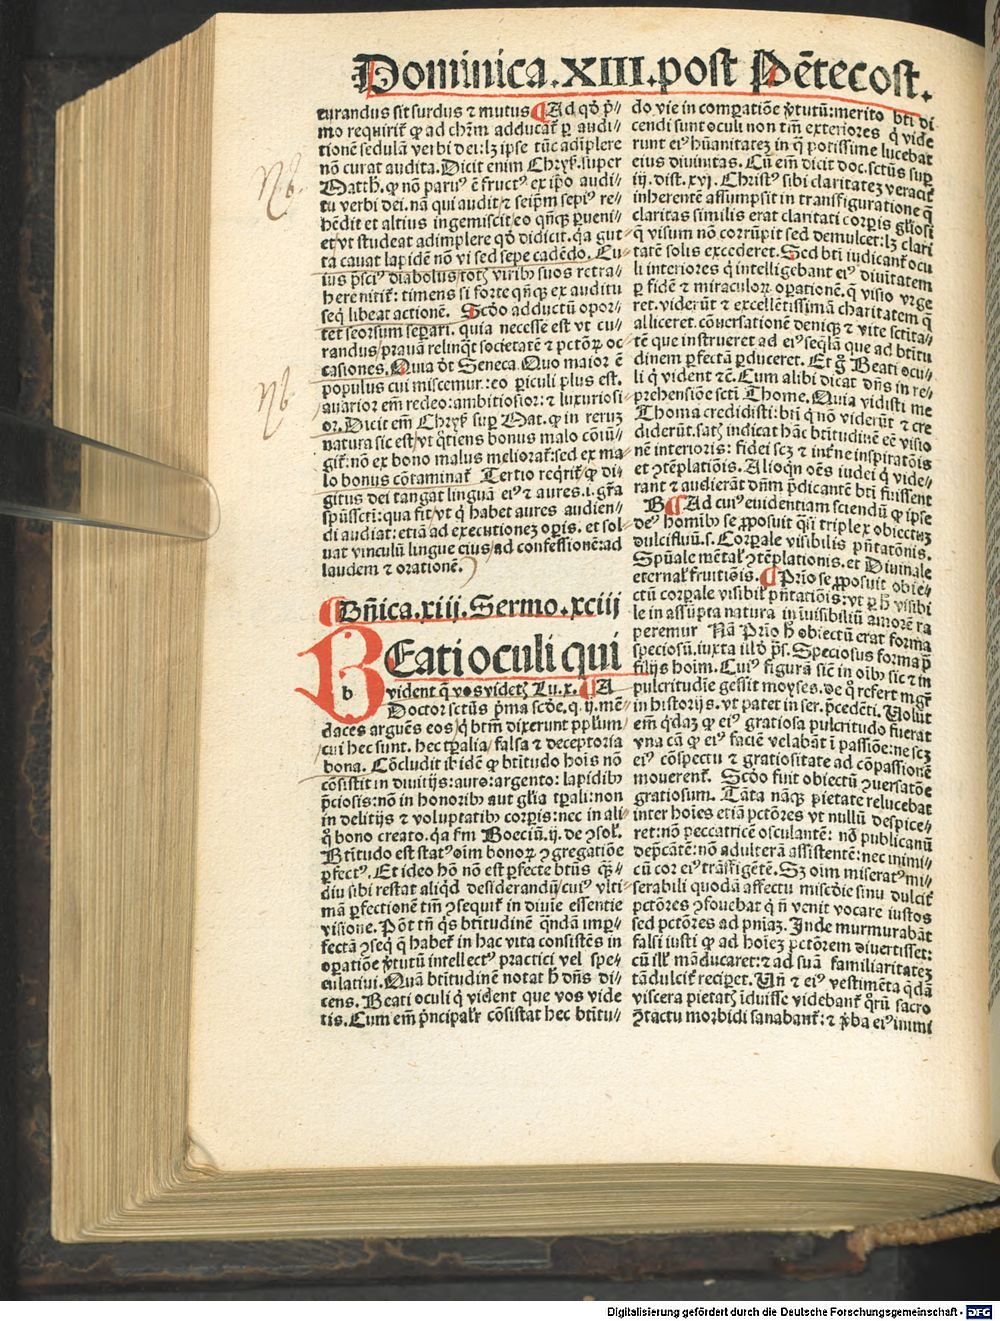 Dominica.XIII.post Pētecost.
curandus sit surdus ⁊ mutus ¶ Ad qđ p̄⸗
mo requirit̃ ꝙ ad chr̄m adducat̃ ꝑ audi⸗
tionē sedulā verbi dei: lꝫ ipse tūc adīplere
nō curat audita. Dicit enim Chrys̄. super
Matth. ꝙ nō paruꝰ ē fructꝰ ex ip̄o audi⸗
tu verbi dei. nā qui audit/ ⁊ seip̄m sepiꝰ re⸗
hēdit et altius ingemiscit/ eo qn̄qꝫ ꝑueni⸗
et/ vt studeat adimplere qđ didicit. q̄a gut⸗
ta cauat lapidē nō vi sed sepe cadēdo. Cu⸗
ius p̄sciꝰ diabolus/ totꝭ viribꝰ suos retra⸗
here nitit̃: timens si forte qn̄qꝫ ex auditu
seq̄ libeat actionē. Scđo adductū opor⸗
tet seorsum seꝑari. quia necesse est vt cu⸗
randus/ prauā relinq̄t societatē ⁊ pctōꝝ oc
casiones. Quia đt Seneca. Quo maior ē
populus cui miscemur: eo ꝑiculi plus est.
auarior em̄ redeo: ambitiosior: ⁊ luxuriosi
or. Dicit em̄ Chrys̄ suꝑ Mat. ꝙ in reruꝫ
natura sic est/ vt q̄tiens bonus malo cōiū⸗
git̃: nō ex bono malus meliorat̃: sed ex ma
lo bonus cōtaminat̃ Tertio req̄rit̃ ꝙ di⸗
gitus dei tangat linguā eiꝰ ⁊ aures. i. gr̄a
spūssct̄i: qua fit/ vt q̄ habet aures audien⸗
di audiat: etiā ad executioneꝫ oꝑis. et sol⸗
uat vinculū lingue eius/ ad confessionē: ad
laudem ⁊ orationē.
¶ Dn̄ica.xiij.Sermo.xciij
BEati oculi qui
b
vident q̄ vos videtꝭ Lu.x. ¶ A
Doctor sctūs p̄ma scđe. q. ij. mē⸗
daces arguēs eos/ q̄ btm̄ dixerunt pplum
cui hec sunt. hec tꝑalia/ falsa ⁊ deceptoria
bona. Cōcludit ib̄idē ꝙ btitudo hois nō
cōsistit in diuitijs: auro: argento: lapidibꝰ
p̄ciosis: nō in honoribꝰ aut gl̄ia tꝑali: non
in delitijs ⁊ voluptatibꝰ corꝑis: nec in ali
q̊ bono creato. q̄a fm Boeciū. ij. de ꝯsol̄.
Btitudo est statꝰ oīm bonoꝝ ꝯgregatiōe
ꝑfectꝰ. Et ideo hō nō est ꝑfecte btūs q̄⸗
diu sibi restat aliqđ desiderandū/ cuiꝰ vlti⸗
mā ꝑfectionē tm̄ ꝯsequit̃ in diuīe essentie
visione. Pōt tn̄ q̄s btitudinē q̄ndā imꝑ⸗
fectā ꝯseq̄ q̄ habet̃ in hac vita consistēs in
oꝑatiōe v̄tutū intellectꝰ practici vel spe⸗
culatiui. Quā btitudinē notat hͦ dn̄s di⸗
cens. Beati oculi q̄ vident que vos vide
tis. Cum em̄ p̄ncipalr̄ cōsistat hec btitu⸗
do vie in comꝑatiōe v̄tutū: merito bti di
cendi sunt oculi non tm̄ exteriores q̄ vide
runt eiꝰ hūanitateꝫ in q̄ potissime lucebat
eius diuinitas. Cū em̄ dicit doc. sctūs suꝑ
iij. dist. xvj. Christꝰ sibi claritateꝫ veracit̃
inherentē assumpsit in transfiguratione q̄
claritas similis erat claritati corꝑis gl̄iosi
q̄ visum nō corrūpit sed demulcet: lꝫ clari
tatē solis excederet. Sed bti iudicant̃ ocu
li interiores q̄ intelligebant eiꝰ diuītatem
ꝑ fidē ⁊ miraculoꝝ oꝑationē. q̄ visio vrge
ret. viderūt ⁊ excellētissimā charitatem q̄
alliceret. cōuersationē deniqꝫ ⁊ vite sctīta⸗
tē que instrueret ad eiꝰ seq̄lā que ad btītu
dinem ꝑfectā ꝑduceret. Et g̊ Beati ocu⸗
li q̄ vident ⁊c̄. Cum alibi dicat dn̄s in re⸗
prehēsiōe sctī Thome. Quia vidisti me
Thoma credidisti: bti q̄ nō viderūt ⁊ cre
diderūt. satꝭ indicat hāc btitudinē eē visio
nē interioris: fidei scꝫ ⁊ int̄ne inspiratōis
et ꝯtēplatiōis. Alioqn̄ oēs iudei q̄ vide⸗
rant ⁊ audierāt dn̄m p̄dicantē bti fuissent
B ¶ Ad cuiꝰ euidentiam sciendū ꝙ ipse
deꝰ homībꝰ se ꝓposuit q̄si triplex obiectuꝫ
dulcifluū. s. Corꝑale visibilis pn̄tatōnis.
Spūale mētal̄ ꝯtēplationis. et Diuinale
eternal̄ fruitiōis. ¶ Prīo se ꝓposuit obie⸗
ctū corꝑale visibil̄ pn̄tatiōis: vt ꝑ hͦ visibi
le in assūpta natura in īuisibiliū amorē ra
peremur Nā Prīo hͦ obiectū erat forma
speciosū. iuxta illđ ps̄. Speciosus forma p̄
filijs hoīm. Cuiꝰ figura sic̄ in oībꝰ sic ⁊ in
pulcritudīe gessit moyses. de q̊ refert mgr̄
in historijs. vt patet in ser. p̄cedēti. Volūt
em̄ q̄daꝫ ꝙ eiꝰ gratiosa pulcritudo fuerat
vna cā ꝙ eiꝰ faciē velabāt ī passiōe: ne scꝫ
eiꝰ cōspectu ⁊ gratiositate ad cōpassionē
mouerent̃. Scđo fuit obiectū ꝯuersatōe
gratiosum. Tāta nāqꝫ pietate relucebat
inter hoīes etiā pctōres vt nullū despice⸗
ret: nō peccatricē osculantē: nō publicanū
dep̄cātē: nō adulterā assistentē: nec inimi⸗
cū cor eiꝰ trāsfigētē. Sꝫ oīm miseratꝰ mi⸗
serabili quodā affectu miscđie sinu dulcit̃
pctōres ꝯfouebat q̄ n̄ venit vocare iustos
sed pctōres ad pn̄iaꝫ. Inde murmurabāt
falsi iusti ꝙ ad hoīeꝫ pctōrem diuertisset:
cū ill̄ māducaret: ⁊ ad suā familiaritateꝫ
tā dulcit̃ reciꝑet. Vn̄ ⁊ eiꝰ vestimēta q̄dā
viscera pietatꝭ īduisse videbant̃ q̄rū sacro
ꝯtactu morbidi sanabant̃: ⁊ v̄ba eiꝰ inimi
Nb.
Nb
Digitalisierung gefördert durch die Deutsche Forschungsgemeinschaft - DFG